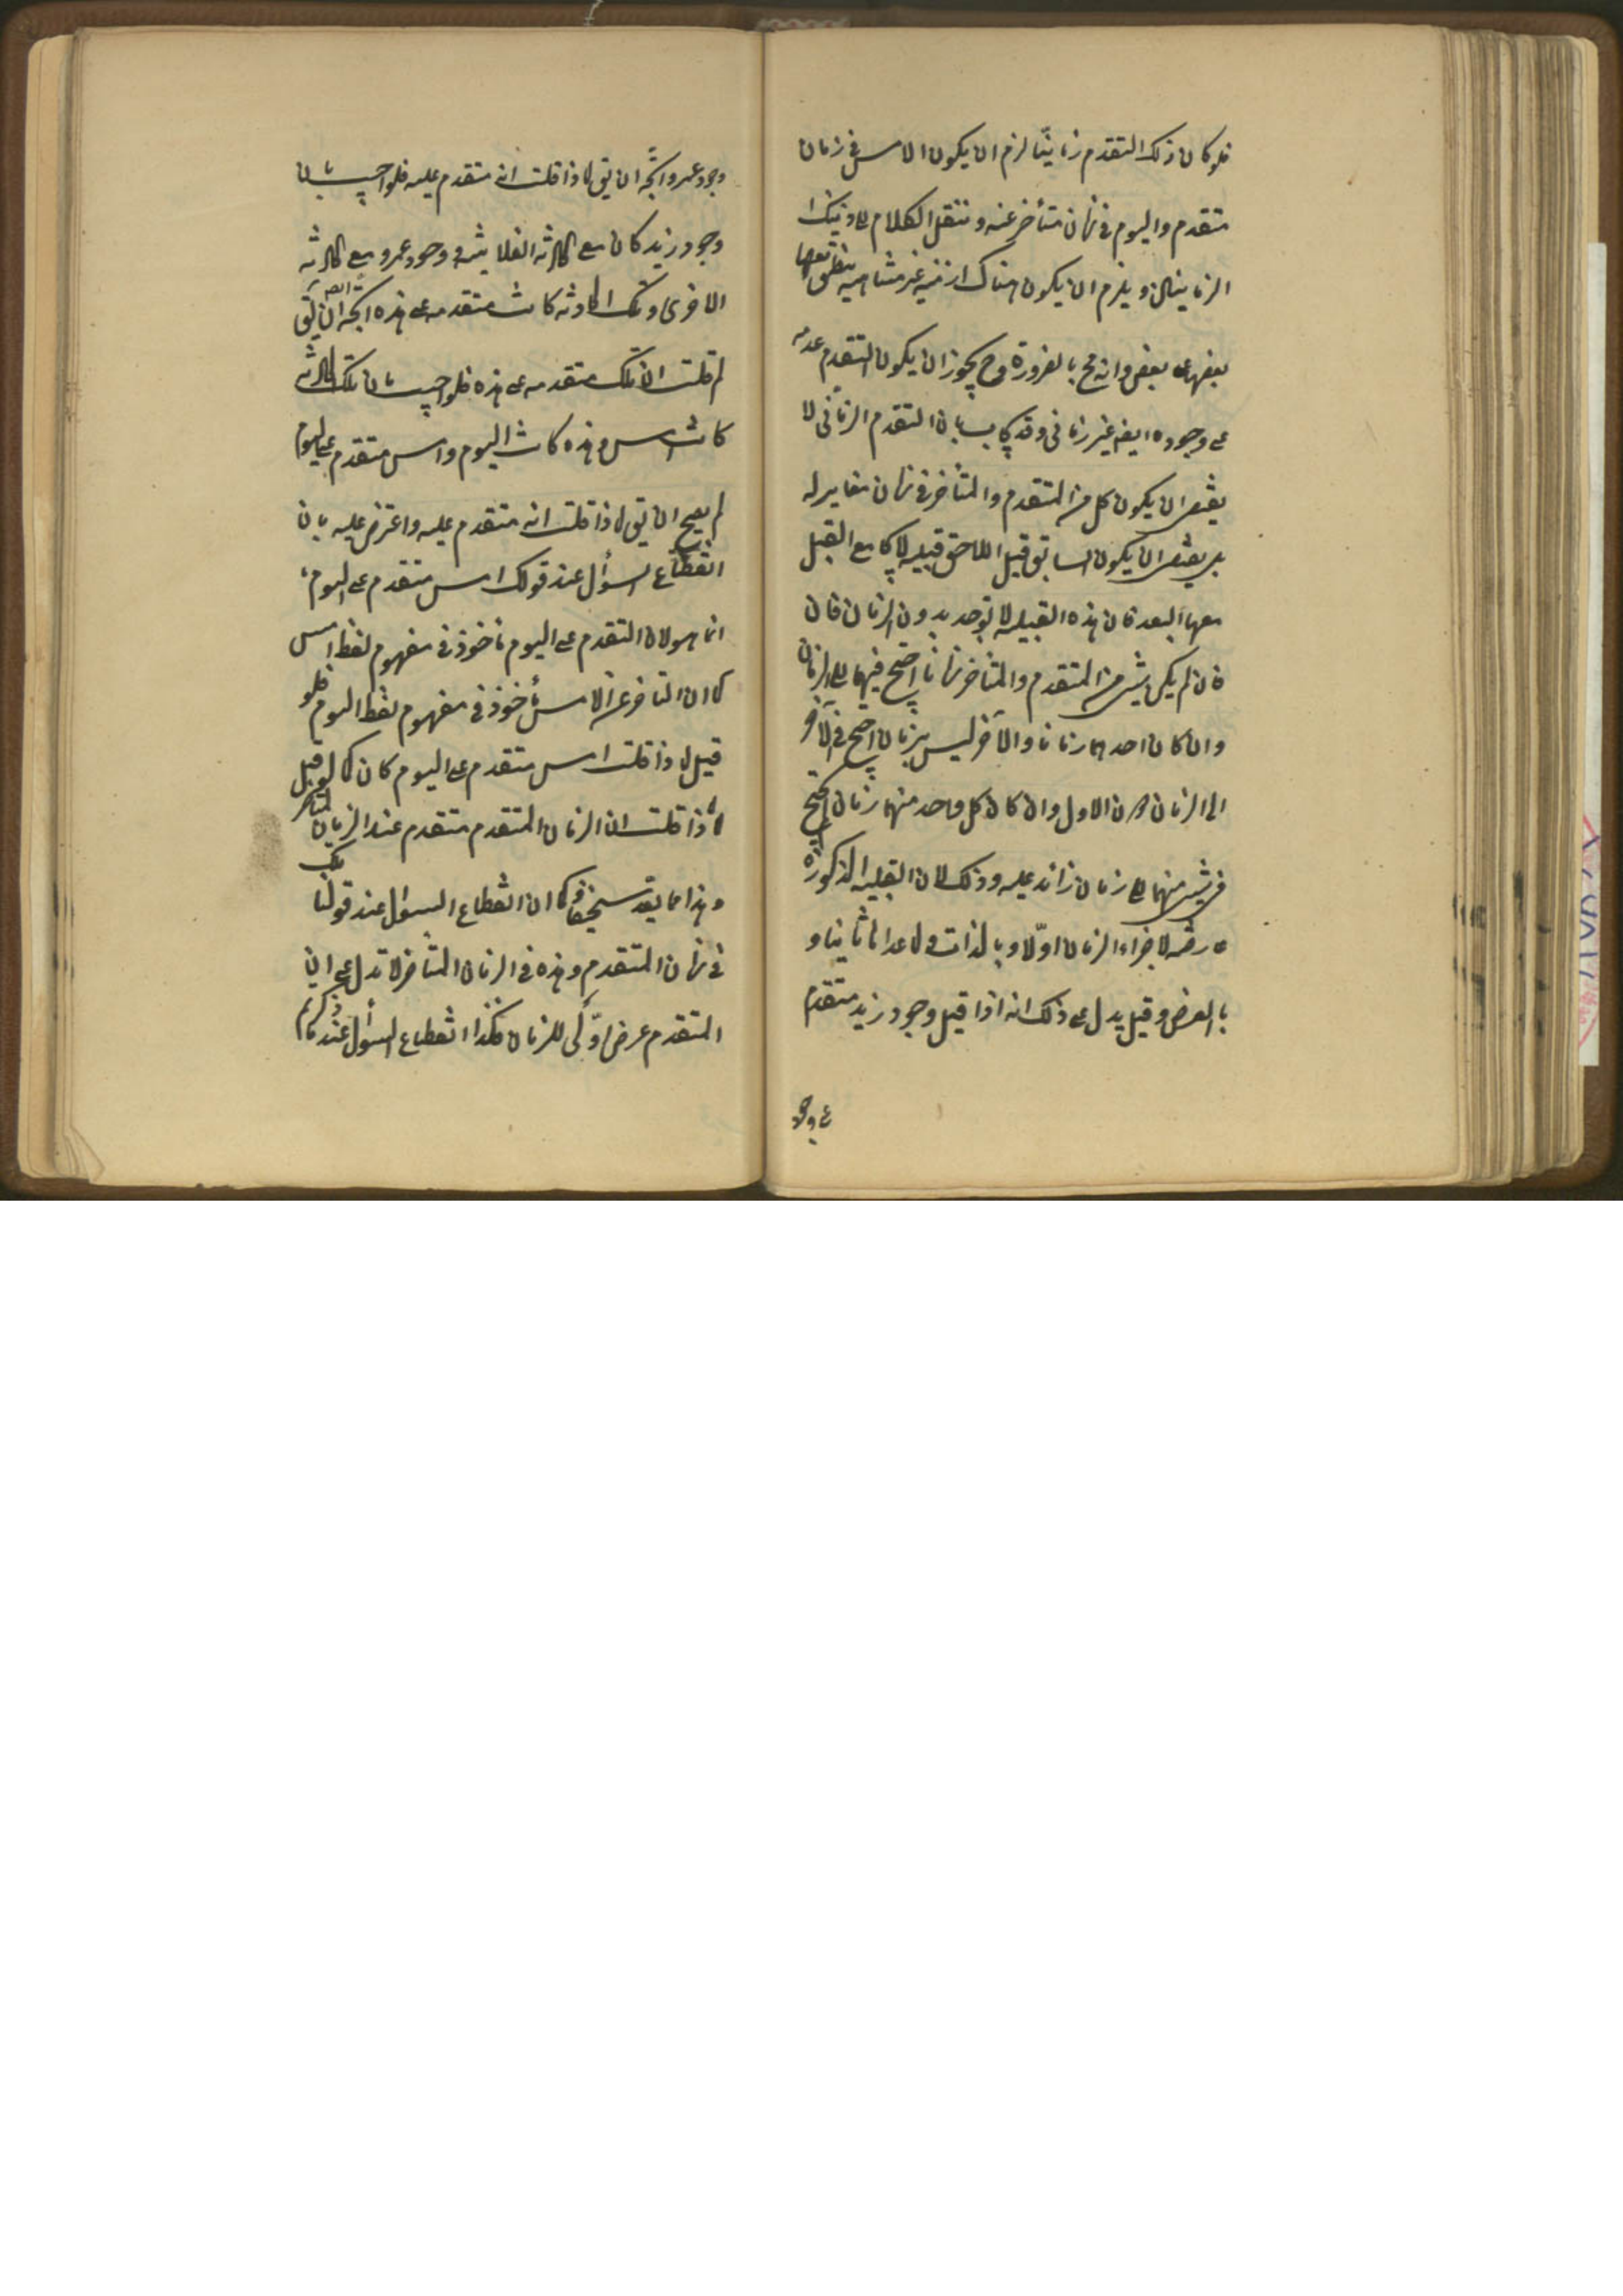 فلو كان ذلك التقدم زمانيّا لزم ان يكون الامس فى زمان
متقدم واليوم فى زمان متأخر عنه وننقل الكلام الى ذينك ا
الزمانين ويلزم ان يكون هناك ازمنة غير متناهية ينطبق بعضها
بعضها على بعض وانه مح بالضرورة وح يجوز ان يكون التقدم عدمه
على وجوده ايضه غير زمانى وقد يجاب بان التقدم الزمانى لا
يقتضى ان يكون كل من المتقدم والمتأخر فى زمان مغاير له
بل يقتضى ان يكون السابق قبل اللاحق قبلية لا يجامع القبل
معها البعد فان هذه القبلية لا توجد بدون الزمان فان
فان لم يكن شىء من المتقدم والمتأخر زمانا احتيج فيهما الى الزمان
وان كان احدهما زمانا والآخر ليس بزمان احتيج فى الآخر
الى الزمان دون الاول وان كان كل واحد منهما زمان لم يحتج
فى شىء منهما الى زمان زائد عليه وذلك لان القبلية المذكورة
عارضة لاجزاء الزمان اوّلا وبالذات ولما عداها ثانيا و
بالعرض وقيل يدل على ذلك انه اذا قيل وجود زيد متقدم
على وجود
وجود عمرو اتّجه ان يق لماذا قلت انه متقدم عليه فلو اجيب بان
وجود زيد كان مع الحادثة الفلانية ووجود عمرو مع الحادثة
الاخرى وتلك الحادثة كانت متقدمه على هذه اتجه ايضا ان يق
لم قلت ان تلك متقدمه على هذه فلو اجيب بان تلك الحادثة
كانت امس وهذه كانت اليوم وامس متقدم على اليوم
لم يصح ان يق لماذا قلت انه متقدم عليه واعترض عليه بان
انقطاع السؤال عند قولك امس متقدم على اليوم
انما هو لان التقدم على اليوم ماخوذ فى مفهوم لفظ امس
كما ان التاخر عن الامس مأخوذ فى مفهوم لفظ اليوم فلو
قيل لماذا قلت امس متقدم على اليوم كان كما لو قيل
لماذا قلت ان الزمان المتقدم متقدم عند الزمان المتاخر
وهذا مما يعد سخيفا فكما ان انقطاع السؤال عند قولنا تلك
فى زمان المتقدم وهذه فى الزمان المتأخر لا تدل على ان
المتقدم عرض اوّلى للزمان فكذا انقطاع السؤال عند ما ذكرتم